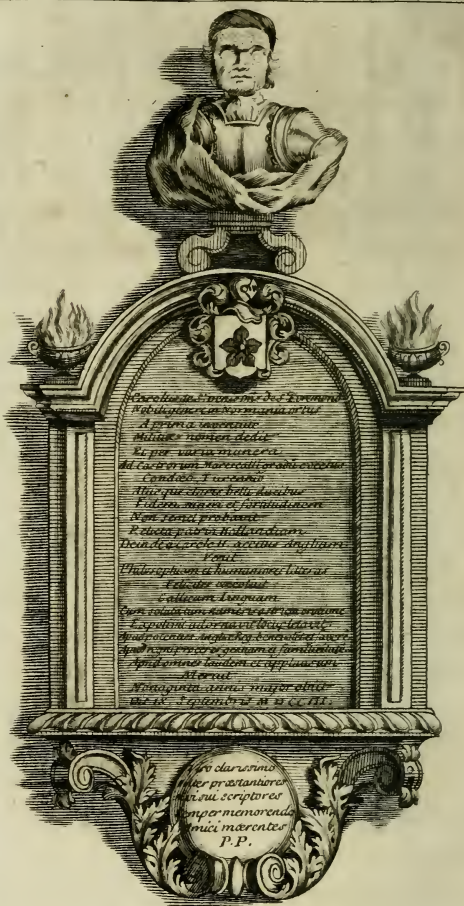 Carolus de St Denis Dnus de St Evremond
Nobili genere in Normania ortus
A prima juventute
Militiæ nomen dedit
Et per varia munera
Ad Castrorum Marescalli gradū evectus
Condæo, Turennio
Aliisque claris belli ducibus
Fidem suam et fortitudinem
Non semel probavit
Relicta patria Hollandiam
Deinde a Carolo II accitus Angliam
Venit
Philosophiam et humaniores literas
Feliciter excoluit
Gallicam linguam
Cum soluta tum numeris astricta oratione
Expolivit adornavit locupletavit
Apud potentiss. Angliæ Reg. benevolent. et favorē
Apud regni proceres gratiam et familiaritatē
Apud omnes laudem et applausum
Meruit
Nonaginta annis major obiit
die ix Septembris MDCCIII.
Viro clarissimo
Inter præstantiores
ævi sui scriptores
Semper memorendo
Amici mœrentes
P.P.